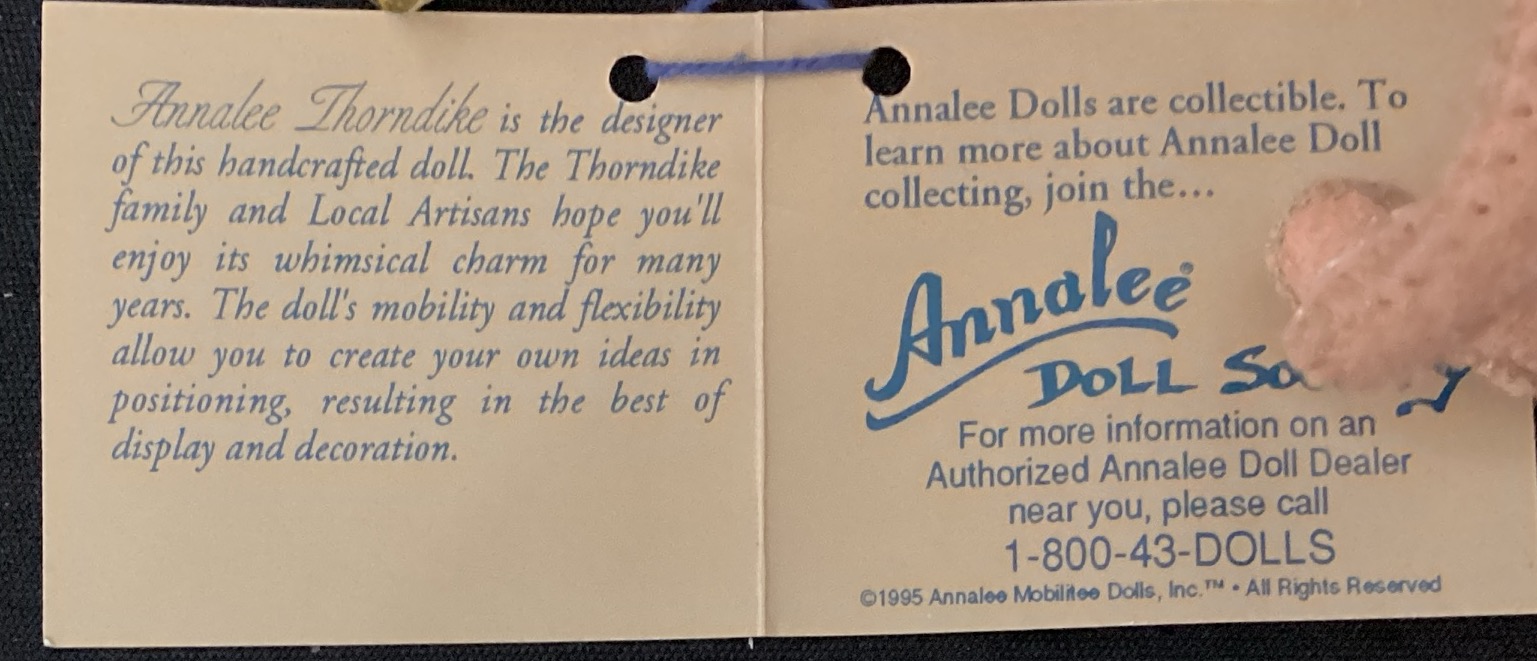 Annalee Thorndike is the designer
of this handcrafted doll. The Thorndike
family and Local Artisans hope you'll
enjoy its whimsical charm for many
years. The doll's mobility and flexibility
allow you to create your own ideas in
positioning, resulting in the best of
display and decoration.
Annalee Dolls are collectible. To
learn more about Annalee Doll
collecting, join the...
Annalee®
DOLL
For more information on an
Authorized Annalee Doll Dealer
near you, please call
1-800-43-DOLLS
©1995 Annalee Mobilitee Dolls, Inc.™ • All Rights Reserved